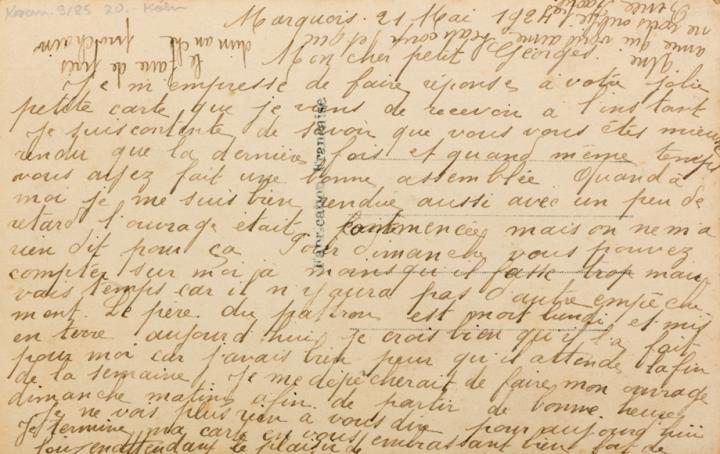 Marquois. 21 Mai 1924
Mon cher petit Georges.
Je m'empresse de faire réponse à votre jolie
petite carte que je viens de recevoir a l'instant
je suis contente de savoir que vous vous êtes mieux
rendu que la dernière fois et quand même temps
vous ayez fait une bonne assemblée. Quand à
moi je me suis bien rendue aussi avec un peu de
retard l'ouvrage était commencée mais on ne m'a
rien dit pour ça Pour dimanche vous pouvez
compter sur moi ja moins qu'il fasse trop mau
vais temps car il n'y aura pas d'autre empêche
ment. Le père du patron est mort lundi et mis
en terre aujourd'hui je crois bien qu'il l'a fait
pour moi car j'avais bien peur qu'il attende la fin
de la semaine Je me dépêcherait de faire mon ouvrage
dimanche matin afin de partir de bonne heure
Je ne vas plus rien a vous dire pour aujourd'hui
Je termine ma carte en vous embrassant bien fort de
loin en attendant le plaisir de
le faire de près
dimanche prochain
Une
amie qui vous aime beaucoup et qui
ne vous oublie
Carte Française